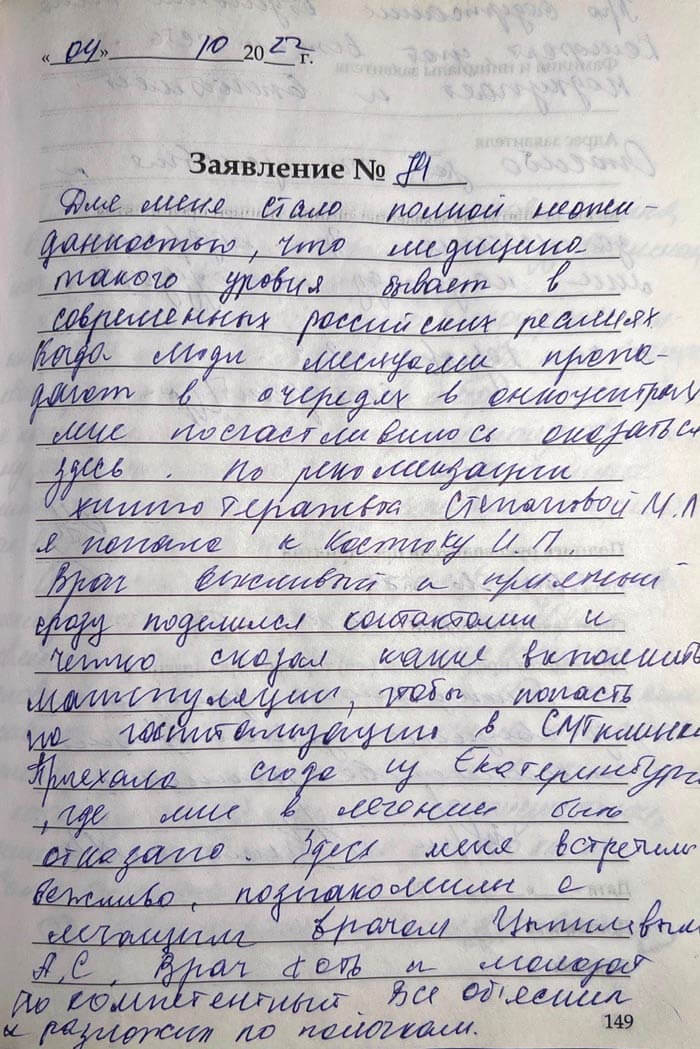 « 04 » 10 2022 г.
Заявление № 74
Для меня стало полной неожи-
данностью, что медицина
такого уровня бывает в
современных российских реалиях.
Когда люди месяцами пропа-
дают в очередях в онкоцентрах
мне посчастливилось оказаться
здесь. По рекомендации
химиотерапевта Степановой М.Л
я попала к Костюку И.П.
Врач вежливый и приятный
сразу поделился контактами и
четко сказал какие выполнить
манипуляции, чтобы попасть
на госпитализацию в СМТ клинику
Приехала сюда из Екатеринбурга
, где мне в лечении было
отказано. Здесь меня встретили
вежливо, познакомили с
лечащим врачом
А.С. Врач хоть и молодой
но компетентный Все объяснил
и разложил по полочкам.
149